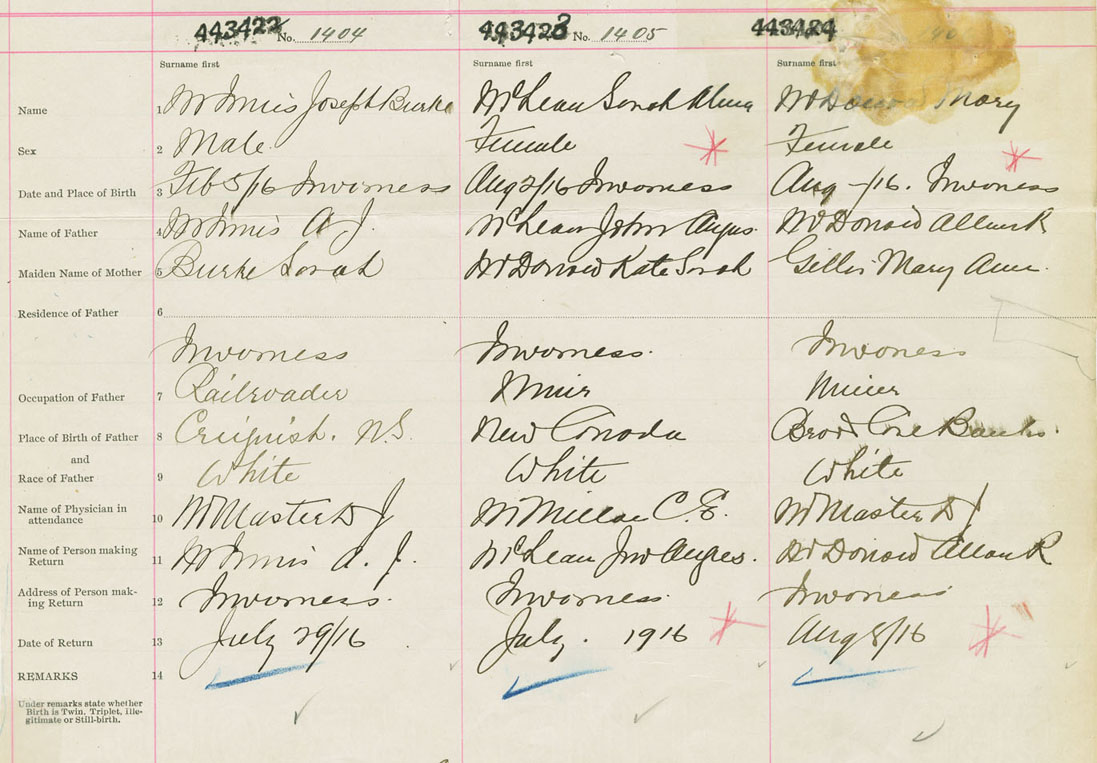 443422 No. 1404 443423 No. 1405 443424
Surname first Surname first Surname first
Name 1 McInnis Joseph Burke McLean Sarah Alma McDonald Mary
Sex 2 Male Female Female
Date and Place of Birth 3 Feb 5/16 Inverness Aug 2/16 Inverness Aug -/16. Inverness
Name of Father 4 McInnis A J. McLean John Angus. McDonald Allan R
Maiden Name of Mother 5 Burke Sarah McDonald Kate Sarah Gillis Mary Ann.
Residence of Father 6
Inverness Inverness. Inverness
Occupation of Father 7 Railroader Miner Miner
Place of Birth of Father 8 N.S. New Canada Broad Cove Banks.
and
Race of Father 9 White White White
Name of Physician in
attendance 10 McMaster D J McMillan C. E. McMaster D J
Name of Person making
Return 11 McInnis A. J. McLean Jno Angus. McDonald Allan R
Address of Person mak-
ing Return 12 Inverness. Inverness. Inverness
Date of Return 13 July 29/16 July. 1916 Aug 8/16
REMARKS 14
Under remarks state whether
Birth is Twin, Triplet, Ille-
gitimate or Still-birth.